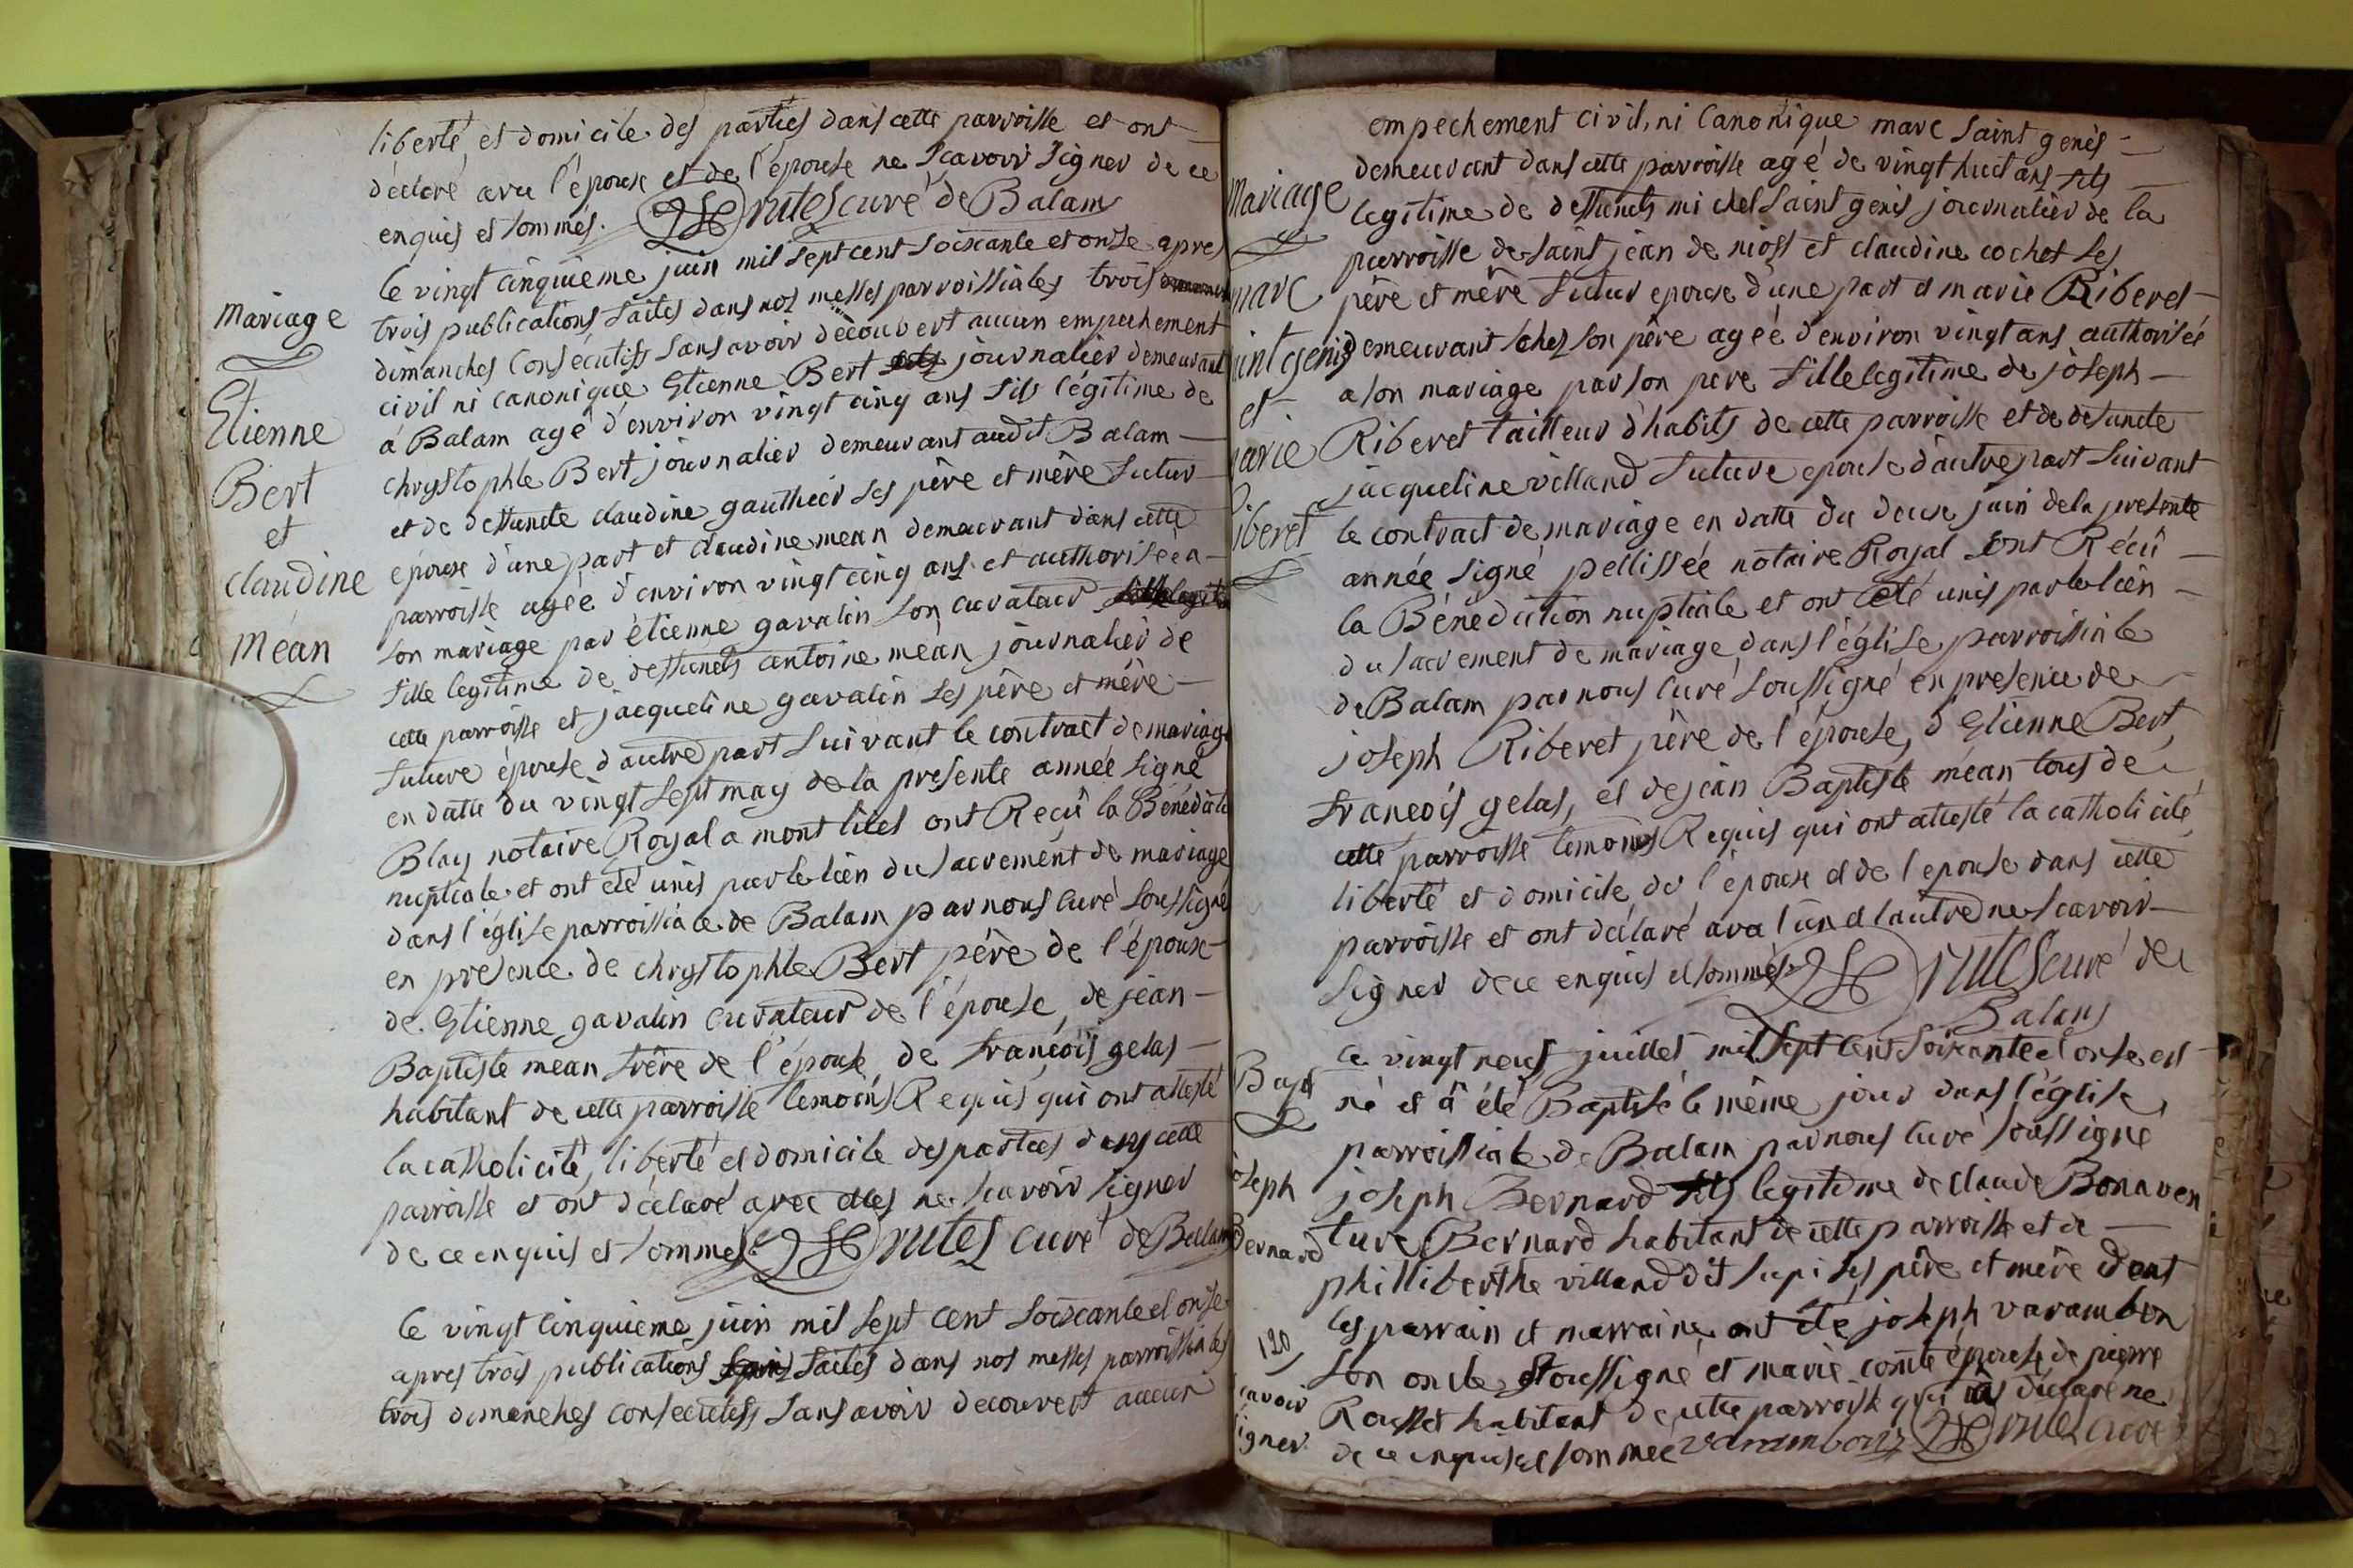 liberté et domicile des parties dans cette parroisse et ont
déclaré avec l'épouse et de l'épouse ne scavoir signer de ce
enquis et sommés. rutes curé de Balam
le vingt cinquieme juin mil sept cent soixante et onse apres
trois publications faites dans nos messes parroissiales trois
dimanches consécutifs sans avoir découvert aucun empechement
civil ni canonique Etienne Bert journalier demeurant
à Balam agé d'environ vingt cinq ans fils légitime de
chrystophle Bert journalier demeurant audit Balam
et de deffuncte claudine gauthier ses père et mère futur
épouse d'une part et claudine mean demeurant dans cette
parroisse agée d'environ vingt cinq ans et authorisée a
son mariage par étienne gavalin son curateur
fille legitime de deffuncts antoine méan journalier de
cette parroisse et jacqueline gavalin ses père et mère
future épouse d'autre part suivant le contract de mariage
en datte du vingt sept may de la presente année signé
Blay notaire Royal a mont ont Reçû la Bénédictio
nuptiale et ont été unis par le lien du sacrement de mariage
dans l'église parroissiale de Balam par nous curé soussigné
en presence de chrystophle Bert père de l'épouse
de Etienne gavalin curateur de l'épouse, de jean
Baptiste mean frère de l'épouse, de francois gelas
habitant de cette parroisse temoins Requis qui ont attesté
la catholicité, liberté et domicile des parties dans cette
parroisse et ont déclaré avec elles ne scavoir signer
de ce enquis et sommes. rutes curé de Balam
le vingt cinquieme juin mil sept cent soixante et onse
apres trois publications faites dans nos messes parroissiales
trois dimanches consecutifs sans avoir decouvert aucun
mariage
Etienne
Bert
et
claudine
méan
empechement civil, ni Canonique marc saint genis
demeurant dans cette parroisse agé de vingt huit ans fils
legitime de deffuncts michel saint genis journalier de la
parroisse de saint jean de niost et claudine cochet ses
père et mère futur epouse d'une part et marie Riberet
demeurant chez son père agée d'environ vingt ans authorisée
a son mariage par son pere fille legitime de joseph
Riberet tailleur d'habits de cette parroisse et de defuncte
jacqueline villand future epouse d'autre part suivant
le contract de mariage en datte du douse juin de la presente
année signé pellissée notaire Royal ont Récû
la Bénédiction nuptiale et ont été unis par le lien
du sacrement de mariage dans l'église parroissiale
de Balam par nous curé soussigné en presence de
joseph Riberet père de l'épouse, d'Etienne Bert,
francois gelas, et de jean Baptiste méan tous de
cette parroisse temoins Requis qui ont attesté la catholicité,
liberté et domicile de l'épouse et de l'epouse dans cette
parroisse et ont déclaré avec l'un et l'autre ne scavoir
signer de ce enquis et sommés rutes curé de
Balam
le vingt neuf juillet mil sept cent soixante et onse est
né et à été Baptisé le même jour dans l'église
parroissiale de Balam par nous curé soussigné
joseph Bernard fils legitime de claude Bonaven
ture Bernard habitant de cette parroisse et de
philliberthe villand dit ses père et mère dont
les parrain et marraine ont été joseph varambon
son oncle soussigné et marie comte épouse de pierre
Rousset habitant de cette parroisse qui a déclaré ne
scavoir signer de ce enquise et sommée varambon rutes curé
mariage
marc
saint genis
et
marie
Riberet
Bapt
joseph
Bernard
120